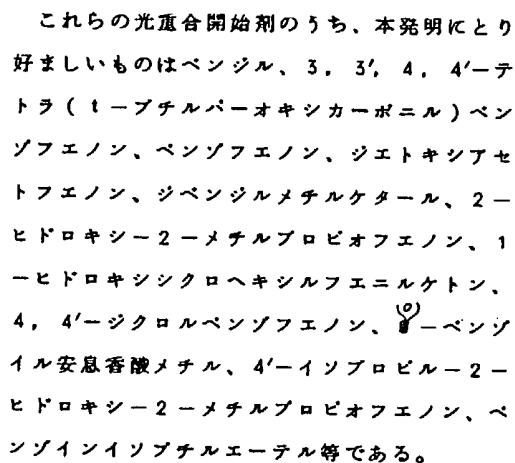 これらの光重合開始剤のうち、本発明にとり
好ましいものはベンジル、3,3′,4,4′−テ
トラ(t−ブチルパーオキシカーボニル)ベン
ゾフエノン、ベンゾフエノン、ジエトキシアセ
トフエノン、ジベンジルメチルケタール、2−
ヒドロキシ−2−メチルプロピオフエノン、1
−ヒドロキシシクロヘキシルフエニルケトン、
4,4′−ジクロルベンゾフエノン、−ベンゾ
イル安息香酸メチル、4′−イソプロピル−2−
ヒドロキシ−2−メチルプロピオフエノン、ベ
ンゾインイソブチルエーテル等である。